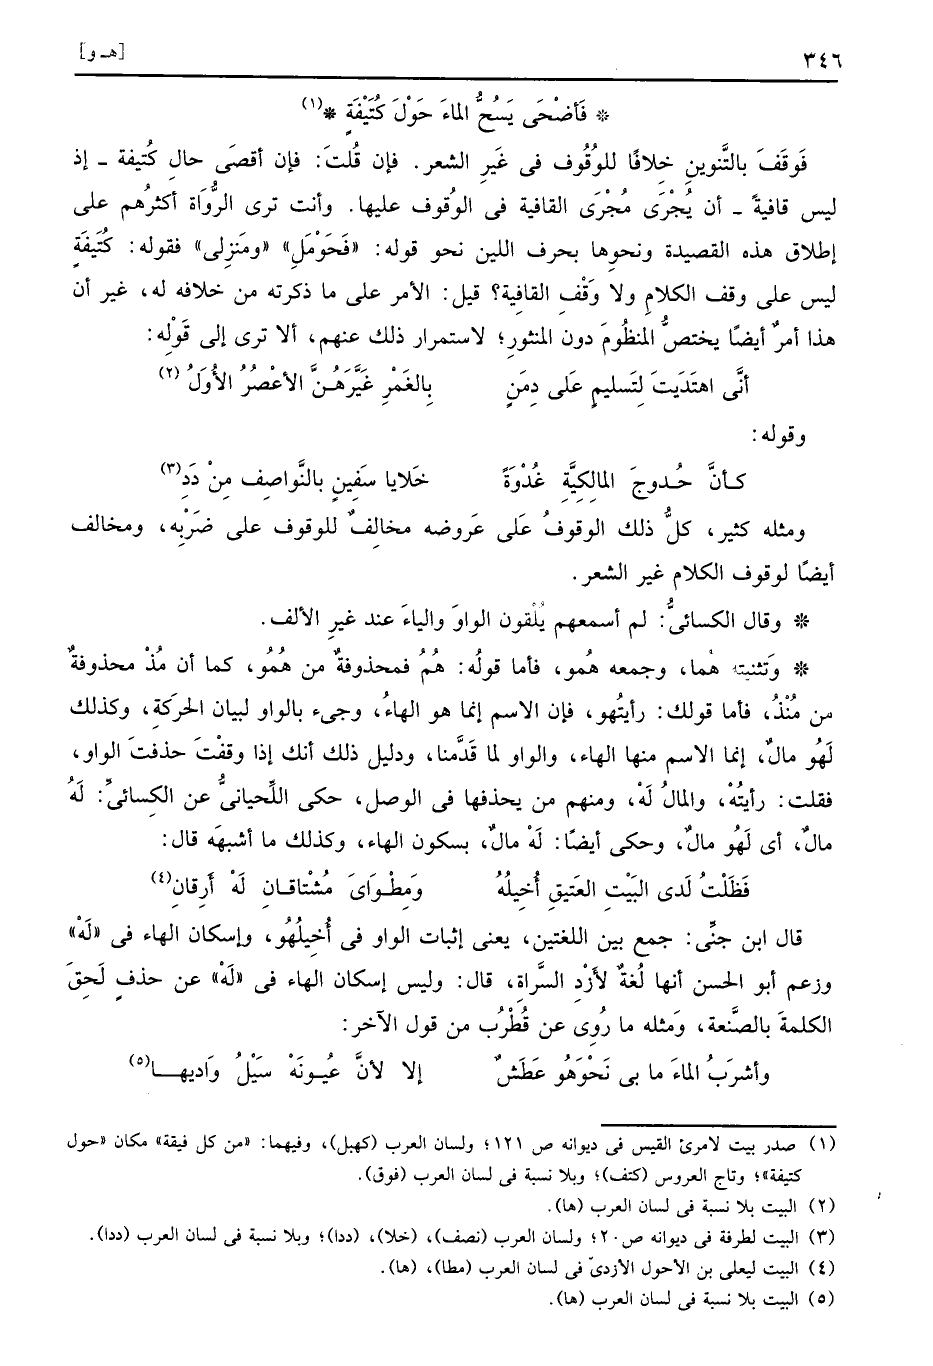 ٣٤٦ [هـ و]
* فَأضْحَى يَسُحُّ الماءَ حَوْلَ كُتَيْفَةٍ *(١)
فَوقَفَ بالتَّنوينِ خلافًا للوُقُوف فى غَيرِ الشعر. فإن قُلتَ: فإن أقصَى حالِ كُتيفة ـ إذ
ليس قافيةً ـ أن يُجْرَى مُجْرَى القافية فى الوُقوف عليها. وأنت ترى الرُّوَاة أكثرُهم على
إطلاق هذه القصيدة ونحوِها بحرف اللين نحو قوله: «فَحَوْمَلِ» «ومَنزِلى» فقوله: كُتَيفَةٍ
ليس على وقف الكلامِ ولا وَقْفِ القافية؟ قيل: الأمر على ما ذكرته من خلافه له، غير أن
هذا أمرٌ أيضًا يختصُّ المنظُومَ دون المنثورِ؛ لاستمرار ذلك عنهم، ألا ترى إلى قَوْلِه:
أنَّى اهتَدَيتَ لِتَسليمٍ عَلى دِمَنٍ بالغَمْرِ غَيَّرَهُنَّ الأعْصُرُ الأُوَلُ(٢)
وقوله:
كأنَّ حُدوجَ المالِكيَّةِ غُدْوَةً خَلايا سفَينٍ بالنَّواصِف مِنْ دَدِ(٣)
ومثله كثير، كلُّ ذلك الوقوفُ عَلى عَروضه مخالِفٌ للوقوف على ضَرْبِه، ومخالف
أيضًا لوقوف الكلام غير الشعر.
* وقال الكسائىُّ: لم أسمعهم يُلْقون الواوَ والياءَ عند غير الألف.
* وَتثنيته هُما، وجمعه هُمو، فأما قولُه: هُمُ فمحذوفةٌ من هُمُو، كما أن مُذْ محذوفةٌ
من مُنْذُ، فأما قولك: رأيتُهو، فإن الاسم إنما هو الهاءُ، وجىء بالواو لبيان الحركَة، وكذلك
لَهُو مالٌ، إنما الاسم منها الهاء، والواو لما قَدَّمنا، ودليل ذلك أنك إذا وقفْتَ حذفتَ الواو،
فقلت: رأيتُهْ، والمالُ لَهْ، ومنهم من يحذفها فى الوصل، حكى اللِّحيانىُّ عن الكسائىِّ: لَهُ
مالٌ، أى لَهُو مالٌ، وحكى أيضًا: لَهْ مالٌ، بسكون الهاء، وكذلك ما أشبهَه قال:
فَظَلْتُ لَدى البَيْتِ العَتيقِ أُخيلُهُ وَمِطْواىَ مُشْتاقانِ لَهْ أَرِقان(٤)
قال ابن جنِّى: جمع بين اللغتين، يعنى إثبات الواو فى أُخيلُهُو، وإسكان الهاء فى «لَهْ»
وزعم أبو الحسن أنها لُغةٌ لأزْدِ السَّراةِ، قال: وليس إسكان الهاء فى «لَهْ» عن حذفٍ لَحِقَ
الكلمةَ بالصَّنعة، وَمثله ما رُوِى عن قُطْرُب من قول الآخر:
وأشرَبُ الماءَ ما بى نَحْوَهُو عَطَشٌ إلا لأنَّ عُيونَهْ سَيْلُ وَاديها(٥)
(١) صدر بيت لامرئ القيس فى ديوانه ص ١٢١؛ ولسان العرب (كهبل)، وفيهما: «من كل فيقة» مكان «حول
كتيفة»؛ وتاج العروس (كتف)؛ وبلا نسبة فى لسان العرب (فوق).
(٢) البيت بلا نسبة فى لسان العرب (ها).
(٣) البيت لطرفة فى ديوانه ص٢٠؛ ولسان العرب (نصف)، (خلا)، (ددا)؛ وبلا نسبة فى لسان العرب (ددا).
(٤) البيت ليعلى بن الأحول الأزدىّ فى لسان العرب (مطا)، (ها).
(٥) البيت بلا نسبة فى لسان العرب (ها).